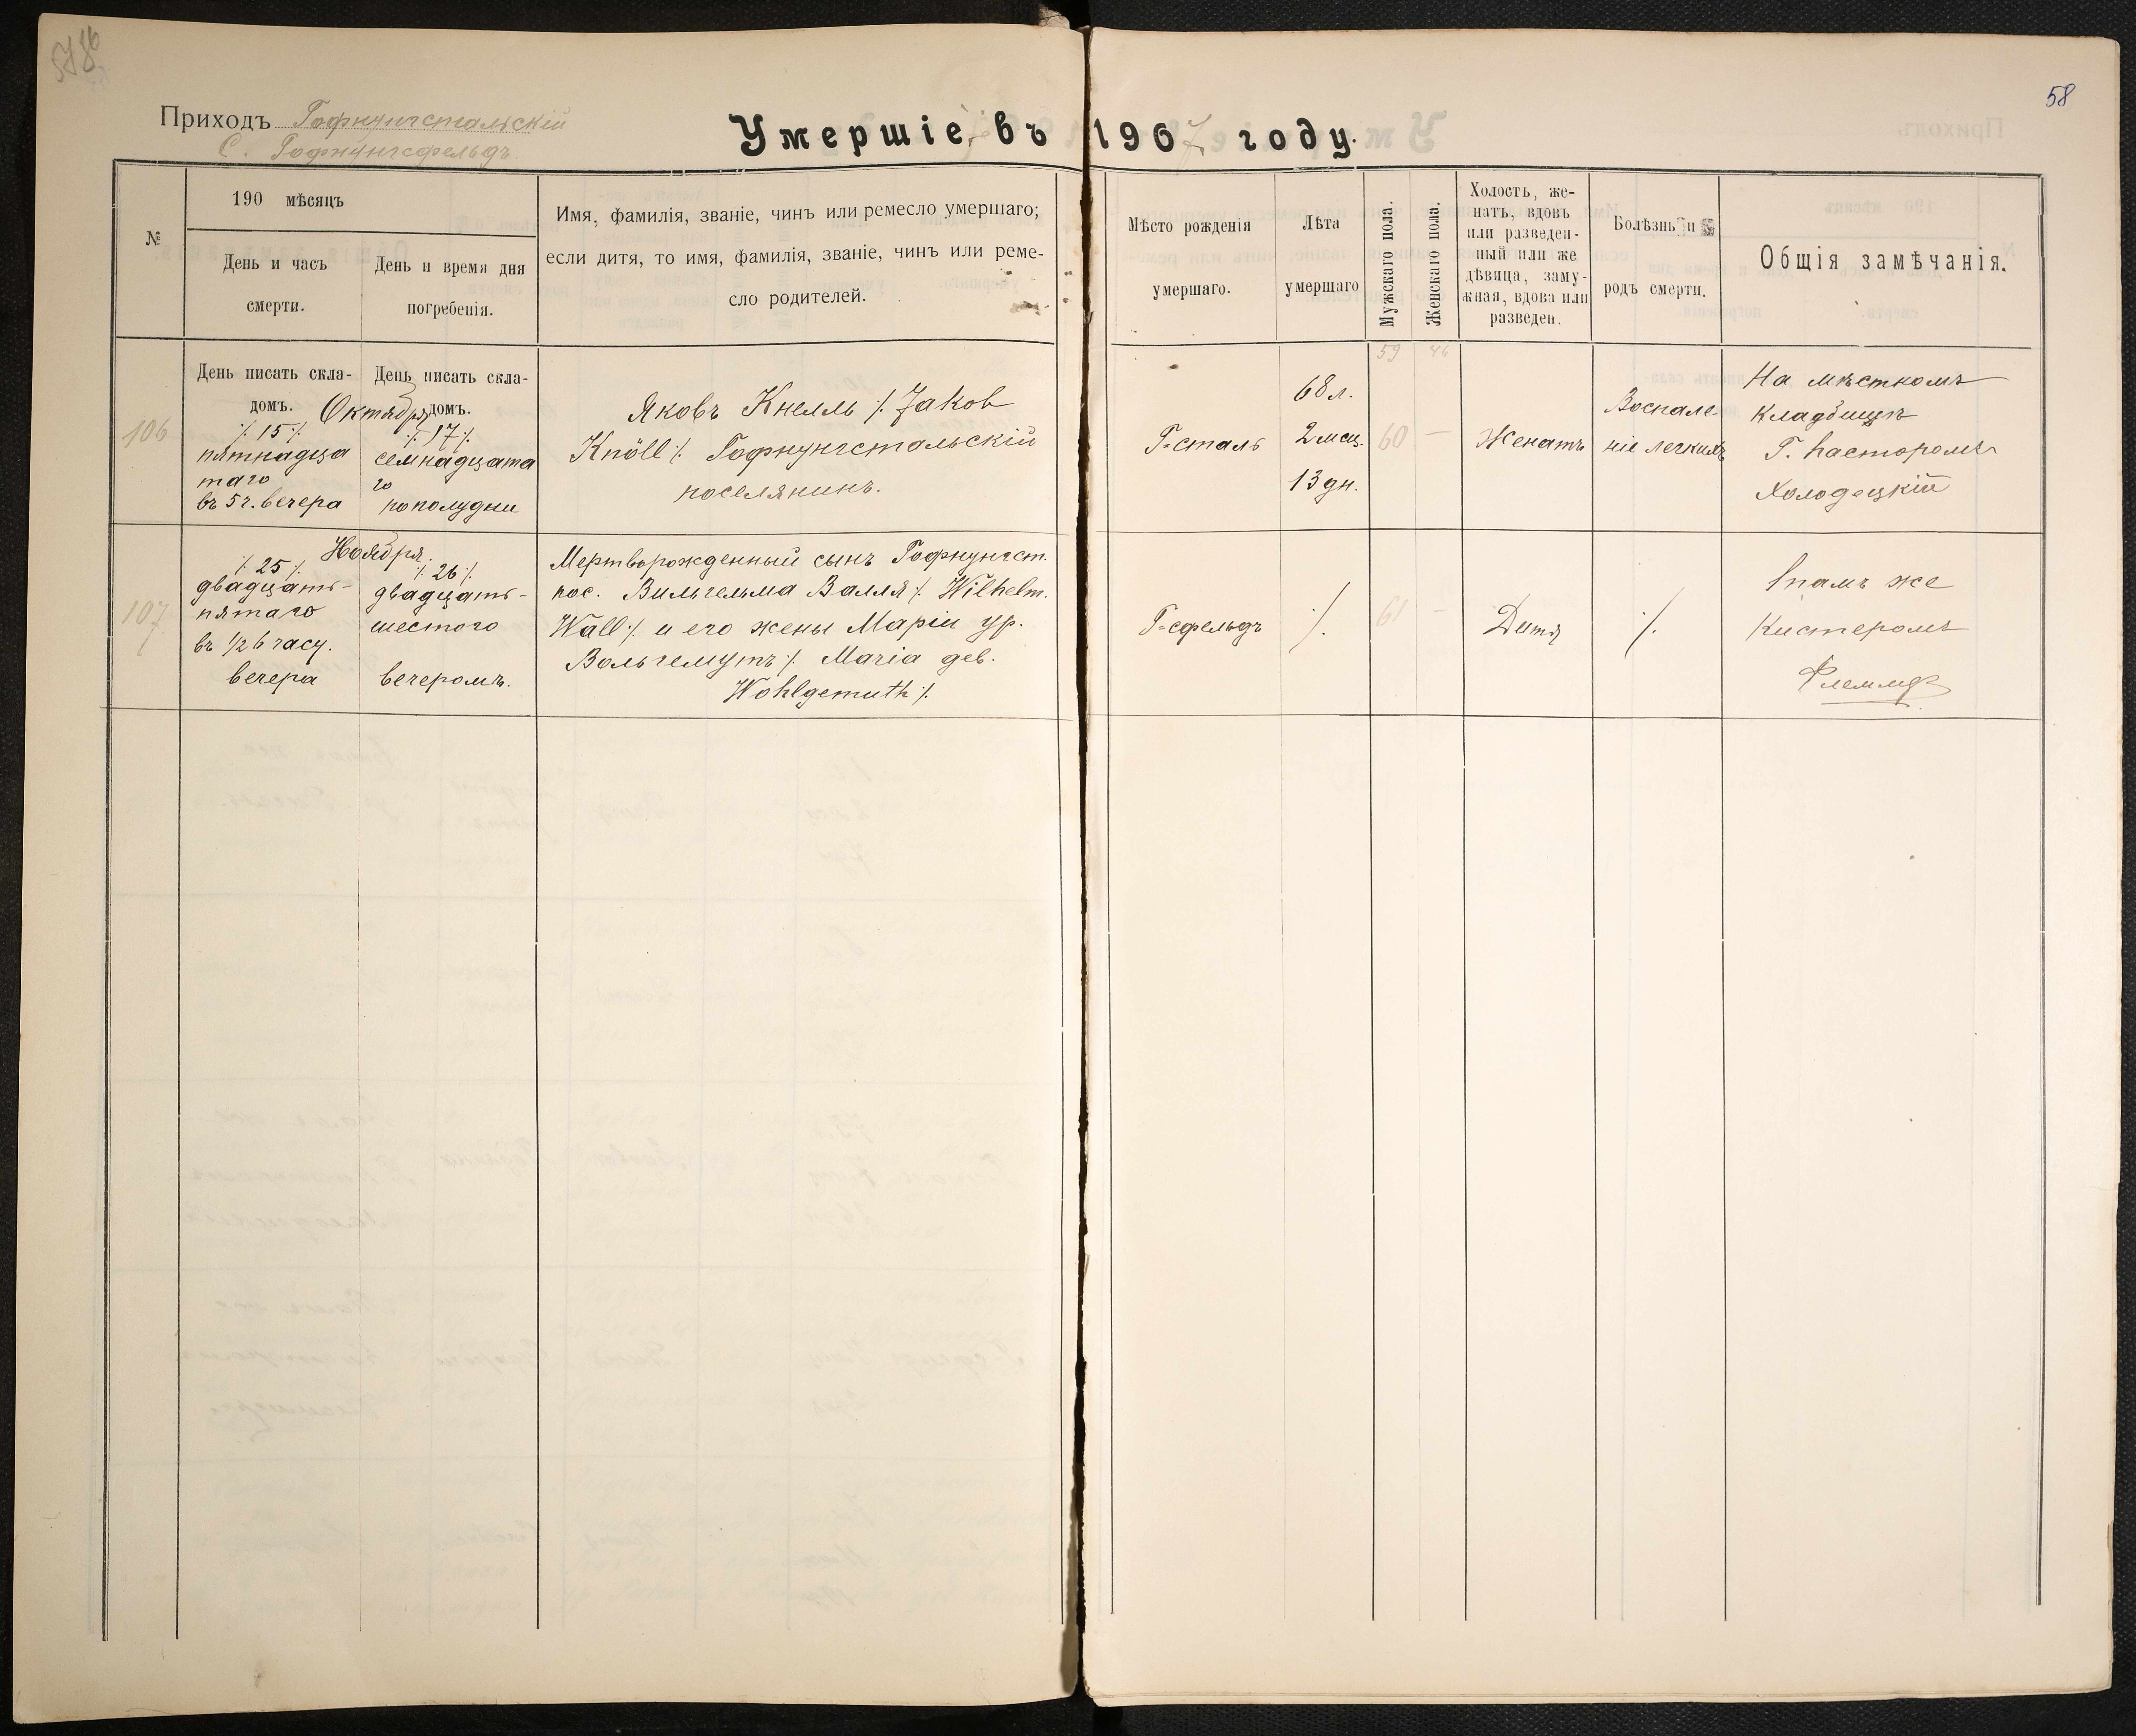 58
Приходъ Гофнунгстальскій
С. Гофнунгсфельдъ.
Умершіе въ 1907 году.
№
190 мѣсяцъ
День и часъ
смерти.
День и время дня
погребенія.
Имя, фамилія, званіе, чинъ или ремесло умершаго;
если дитя, то имя, фамилія, званіе, чинъ или реме-
сло родителей.
Мѣсто рожденія
умершаго.
Лѣта
умершаго
Мужскаго пола.
Женскаго пола.
Холостъ, же-
натъ, вдовъ
или разведен-
ный или же
дѣвица, заму-
жная, вдова или
разведен.
Болѣзнь и
родъ смерти.
Общія замѣчанія.
59 46
106
День писать скла-
домъ.
День писать скла-
домъ.
Октября
/. 15 /.
пятнадца
таго
въ 5 ч. вечера
/. 17 /.
семнадцата
го
пополудни
Яковъ Кнелль /. Jakob
Knöll /. Гофнунгстальскій
поселянинъ.
Г=сталь
68 л.
2 мсц.
13 дн.
60 —
Женатъ
Воспале-
ніе легкихъ
На мѣстномъ
кладбищѣ
Г. Пасторомъ
Холодецкій
107
Ноября
/. 25 /.
двадцать-
пятаго
въ ½ 6 часу.
вечера
/. 26 /.
двадцать-
шестого
вечеромъ.
Мертворожденный сынъ Гофнунгст.
пос. Вильгельма Валля /. Wilhelm
Wall /. и его жены Маріи ур.
Вольгемутъ /. Maria geb.
Wohlgemuth /.
Г=сфельдъ
/.
61 —
Дитя
/.
Тамъ же
Кистеромъ